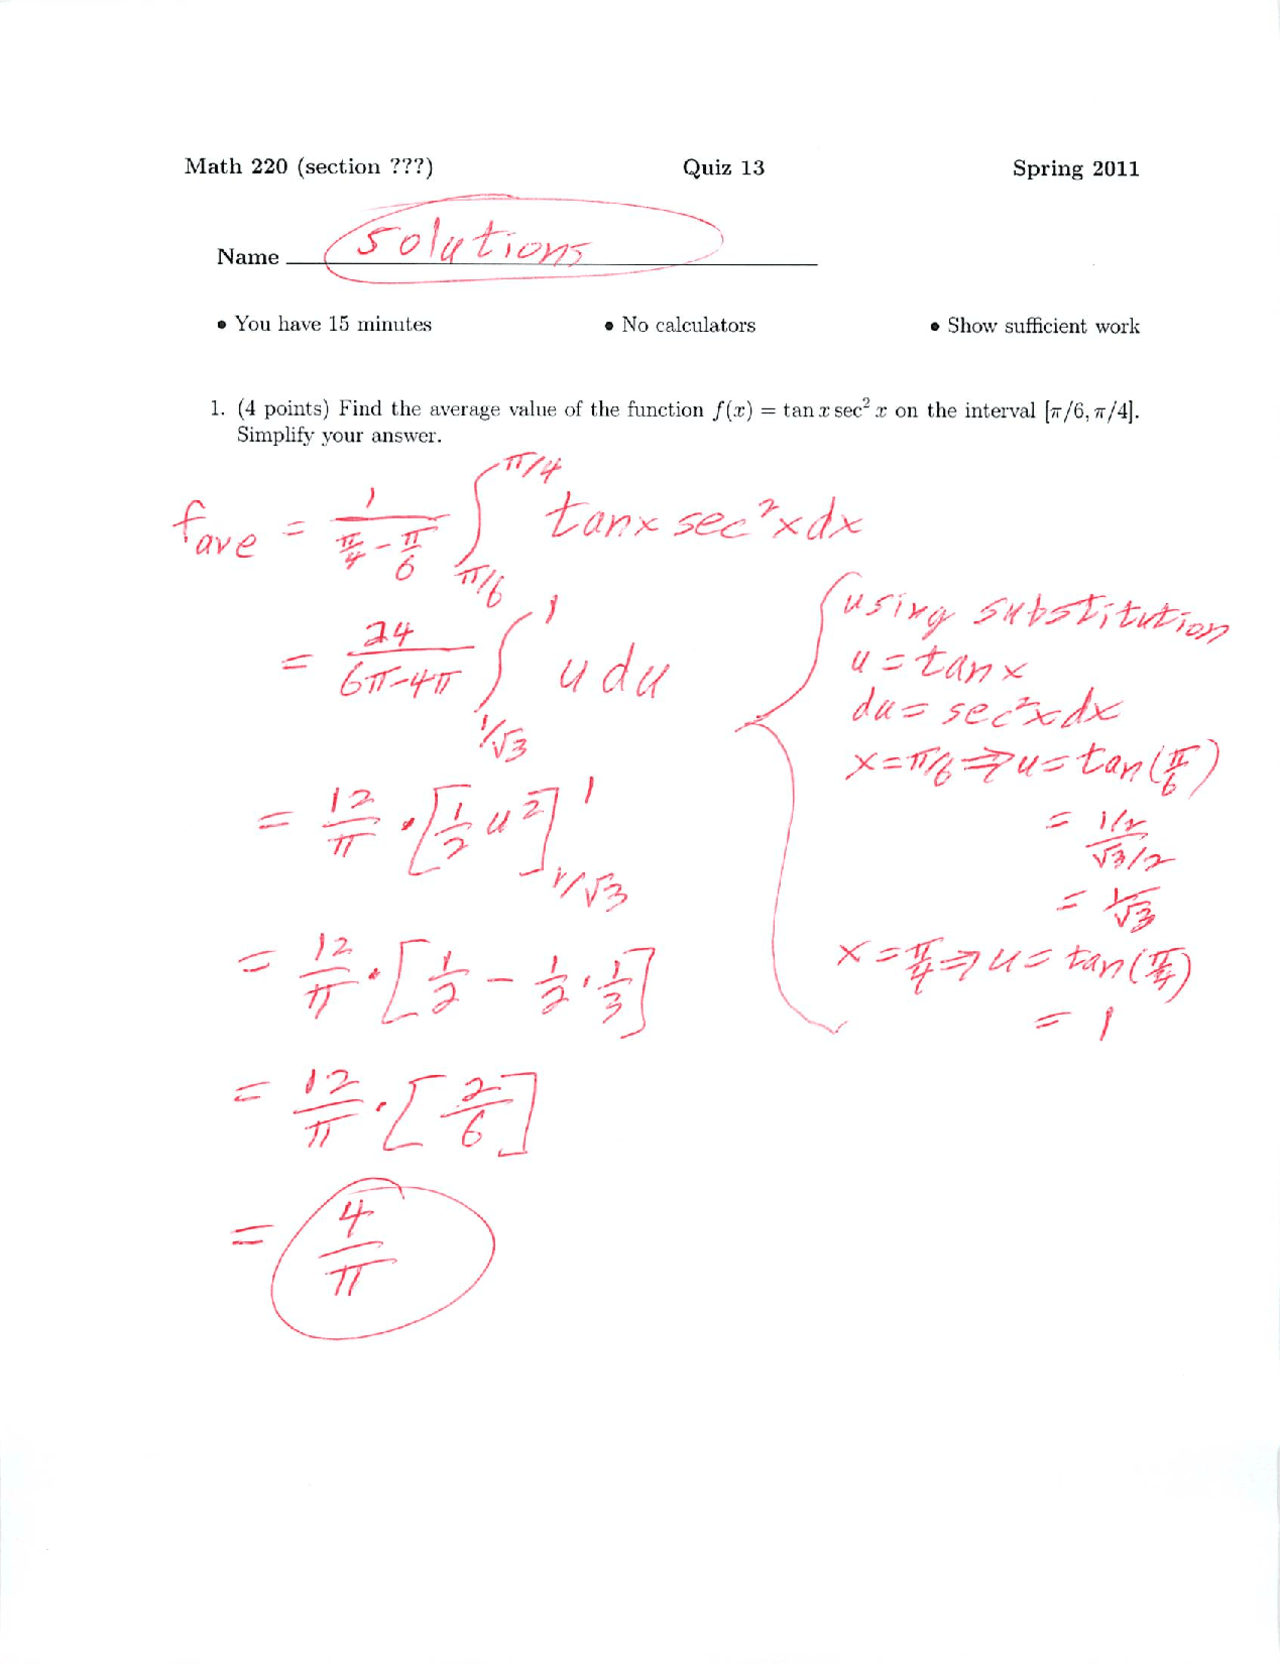 Math 220 (section ???) Quiz 13 Spring 2011
Name solutions
• You have 15 minutes • No calculators • Show sufficient work
1. (4 points) Find the average value of the function f(x) = tan x sec² x on the interval [π/6, π/4].
Simplify your answer.
f_ave = 1/(π/4 − π/6) ∫_{π/6}^{π/4} tanx sec²x dx
= 24/(6π−4π) ∫_{1/√3}^{1} u du
= 12/π • [1/2 u²]_{1/√3}^{1}
= 12/π • [1/2 − 1/2 · 1/3]
= 12/π • [2/6]
= 4/π
using substitution
u = tanx
du = sec²x dx
x = π/6 ⇒ u = tan(π/6)
= (1/2)/(√3/2)
= 1/√3
x = π/4 ⇒ u = tan(π/4)
= 1